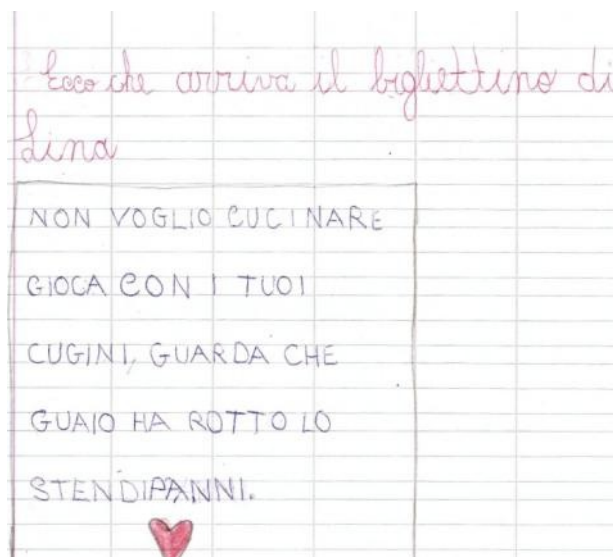 Ecco che arriva il bigliettino di
Lina
NON VOGLIO CUCINARE
GIOCA CON I TUOI
CUGINI, GUARDA CHE
GUAIO HA ROTTO LO
STENDIPANNI.